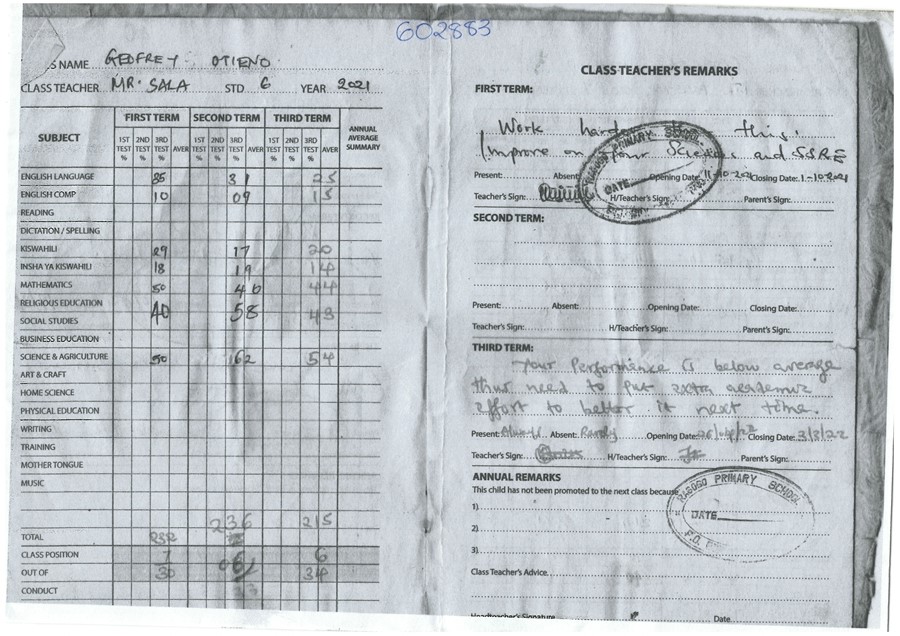 602883
S NAME GEOFREY OTIENO
CLASS TEACHER MR. SALA STD 6 YEAR 2021
SUBJECT
FIRST TERM SECOND TERM THIRD TERM ANNUAL AVERAGE SUMMARY
1ST TEST % 2ND TEST % 3RD TEST % AVER 1ST TEST % 2ND TEST % 3RD TEST % AVER 1ST TEST % 2ND TEST % 3RD TEST % AVER
ENGLISH LANGUAGE 31 25
ENGLISH COMP 10 09 15
READING
DICTATION / SPELLING
KISWAHILI 29 17 20
INSHA YA KISWAHILI 18 19 14
MATHEMATICS 50 40 44
RELIGIOUS EDUCATION
SOCIAL STUDIES 40 58 43
BUSINESS EDUCATION
SCIENCE & AGRICULTURE 50 62 54
ART & CRAFT
HOME SCIENCE
PHYSICAL EDUCATION
WRITING
TRAINING
MOTHER TONGUE
MUSIC
236 215
TOTAL 232
CLASS POSITION 7 6
OUT OF 30 34
CONDUCT
CLASS TEACHER'S REMARKS
FIRST TERM:
Work hard this.
Improve on your and SSRE
Present: Absent Opening Date: 11-10-2021 Closing Date: 1-10-2021
Teacher's Sign: H/Teacher's Sign: Parent's Sign:
RASOGO PRIMARY SCHOOL
DATE
SECOND TERM:
Present: Absent: Opening Date: Closing Date:
Teacher's Sign: H/Teacher's Sign: Parent's Sign:
THIRD TERM:
Your Performance is below average
thus need to put extra academic
effort to better it next time.
Present: Always Absent: Rarely Opening Date: Closing Date: 3/3/22
Teacher's Sign: H/Teacher's Sign: Parent's Sign:
ANNUAL REMARKS
This child has not been promoted to the next class because
1)
2)
3)
RASOGO PRIMARY SCHOOL
DATE
P.O.
Class Teacher's Advice
Headteacher's Signature Date